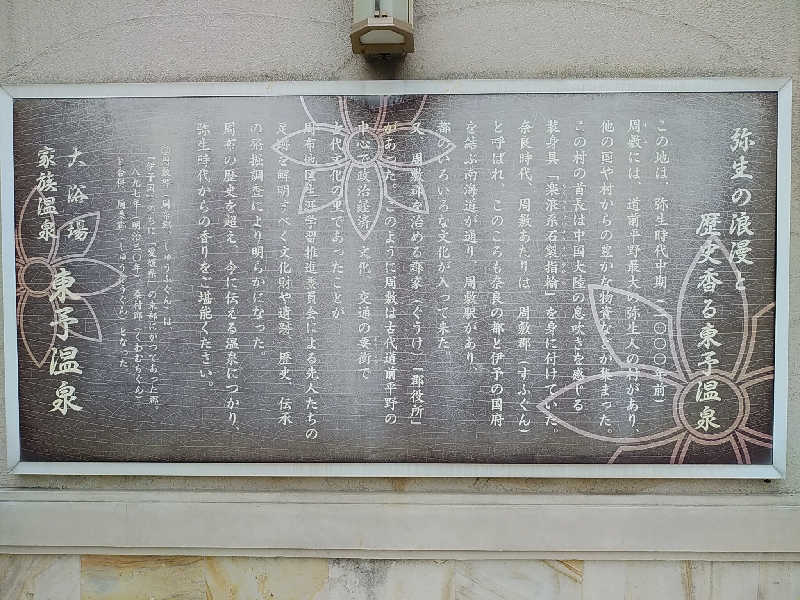 弥生の浪漫と
歴史香る東予温泉
この地は、弥生時代中期(二〇〇〇年前)
周敷には、道前平野最大の弥生人の村があり、
他の国や村からの豊かな物資などが集まった。
この村の首長は中国大陸の息吹きを感じる
装身具「楽浪系石製指輪」を身に付けていた。
奈良時代、周敷あたりは、周敷郡(すふぐん)
と呼ばれ、このころも奈良の都と伊予の国府
を結ぶ南海道が通り、周敷駅があり、
都のいろいろな文化が入って来た。
又、周敷郡を治める郡家(ぐうけ)「郡役所」
があった。このように周敷は古代道前平野の
中心で政治経済、文化、交通の要衝で
古代文化の里であったことが
周布地区生涯学習推進委員会による先人たちの
足跡を解明すべく文化財や遺跡、歴史、伝承
の発掘調査により明らかになった。
周布の歴史を超え、今に伝える温泉につかり、
弥生時代からの香りをご堪能ください。
「伊予国」のちに「愛媛県」の東部にかつてあった郡。
一八九七年(明治三〇年)、桑村郡(くわむらぐん)
と合併、周桑郡(しゅうそうぐん)となった。
大浴場
家族温泉
東予温泉